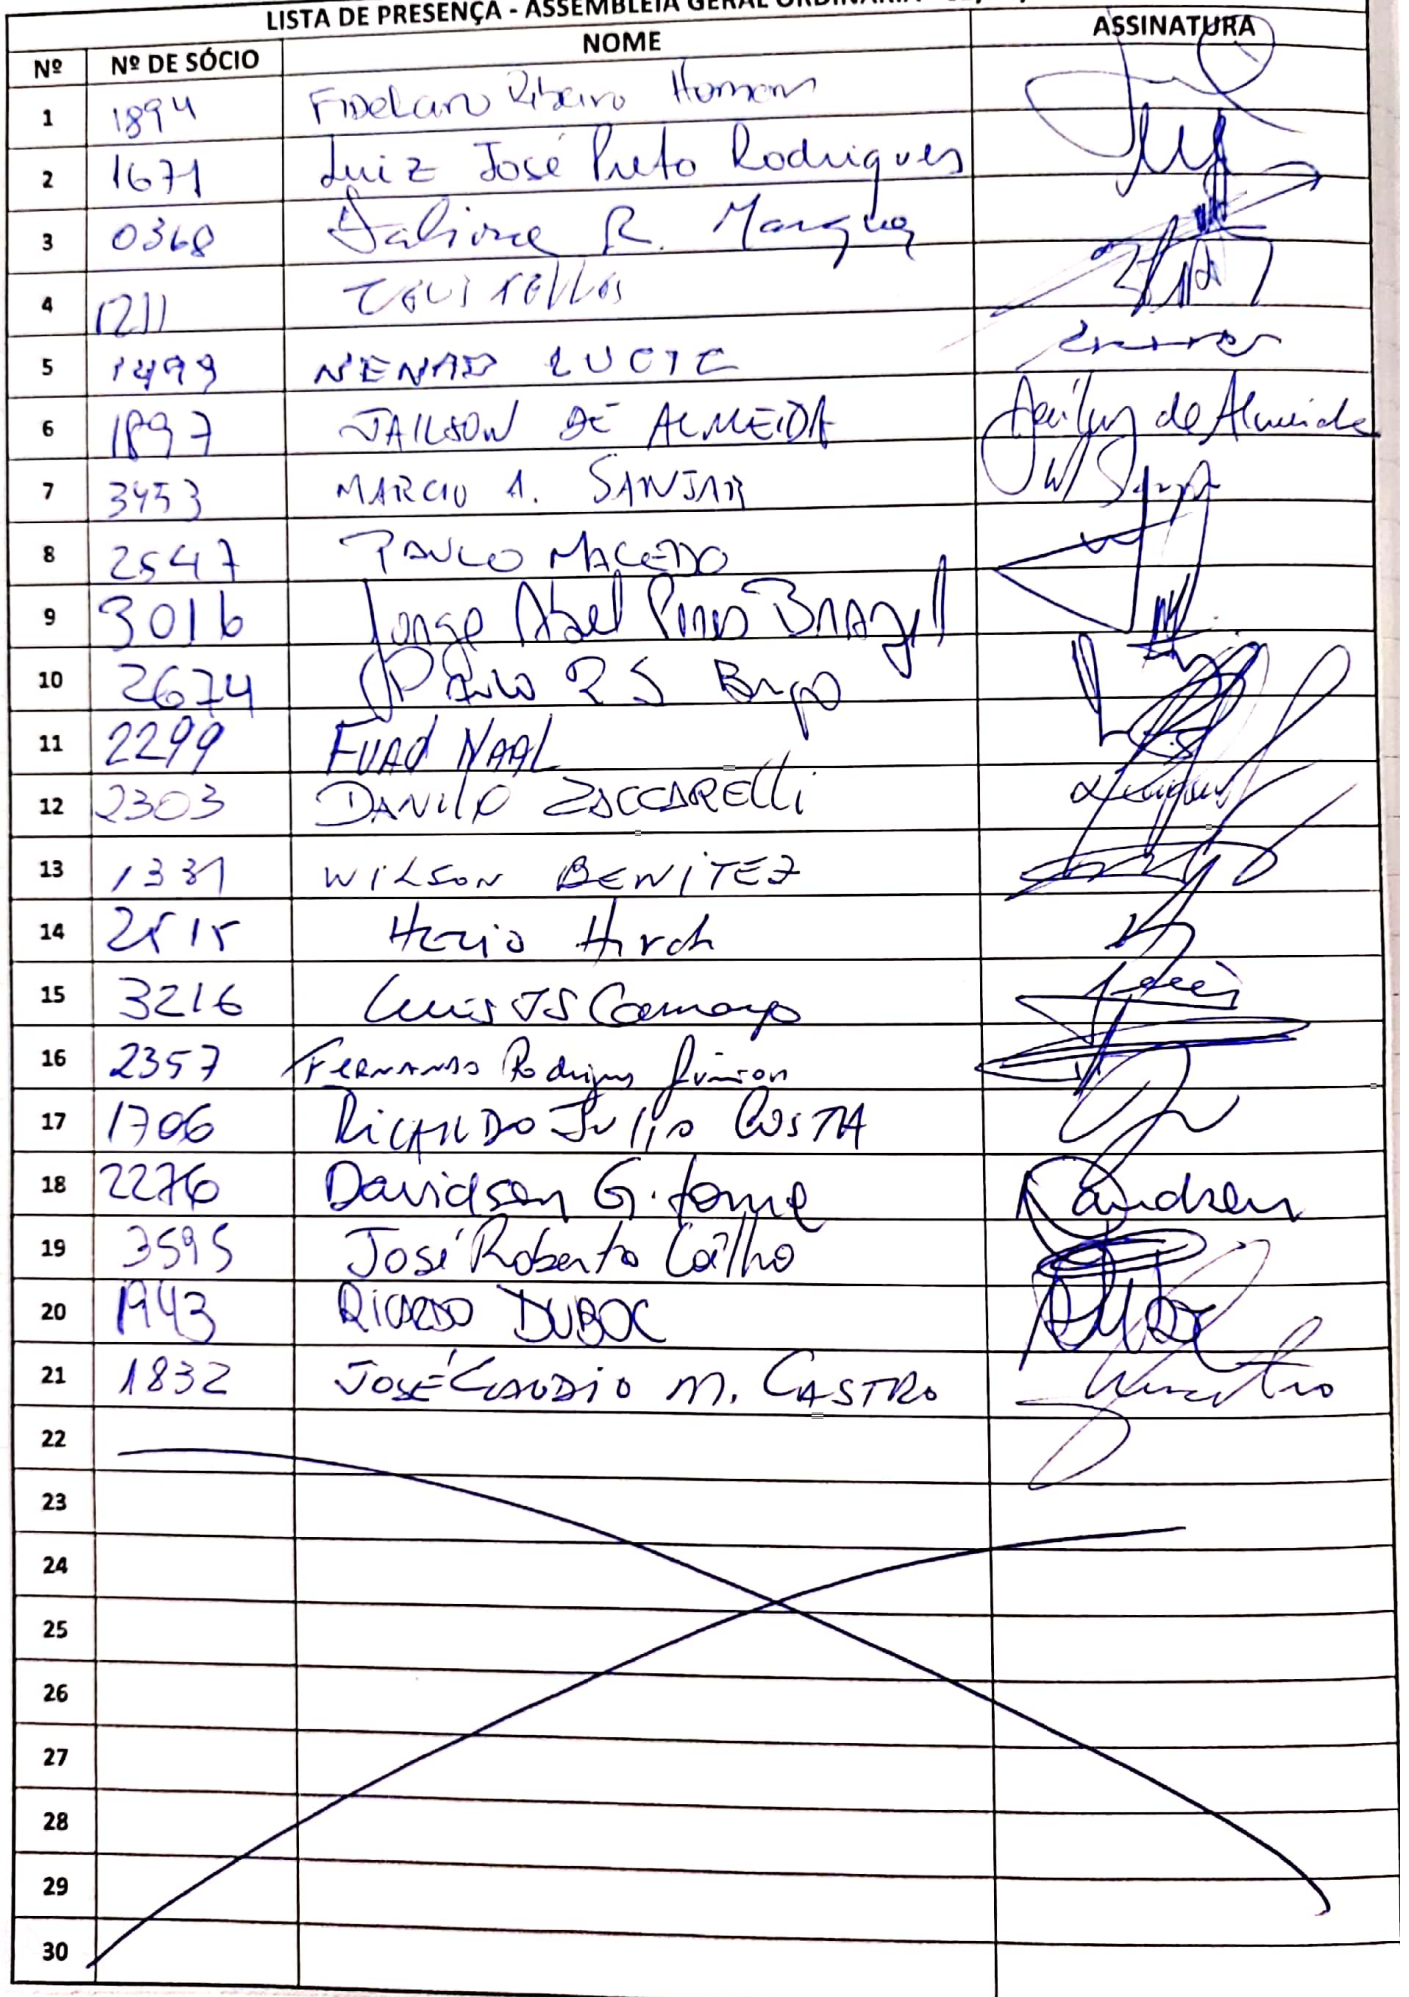 LISTA DE PRESENÇA - ASSEMBLEIA GERAL ORDINÁRIA
Nº Nº DE SÓCIO NOME ASSINATURA
1 1894 Fidelcino Ribeiro Homem
2 1671 Luiz José Preto Rodrigues
3 0368 R. Marques
4 1211
5 1499 NENAD LUCIC
6 1897 JAILSON DE ALMEIDA de Almeida
7 3453 MARCIO A. SANJAR
8 2547 PAULO MACEDO
9 3016 Jorge Abel Pires BRAZil
10 2674 PAulo R S
11 2299 FUAd NAAL
12 2303 DANilo ZACCARElli
13 1331 WILSON BENITEZ
14 2515 Hirch
15 3216 Luis JS Camargo
16 2357 FERNANDO Rodrigues Júnior
17 1706 RiCARDO JULIO COSTA
18 2276 Davidson G. Davidson
19 3595 José Roberto Coêlho
20 1943 RICARDO DUBOC
21 1832 JOSÉ CLAUDIO M. CASTRO
22
23
24
25
26
27
28
29
30